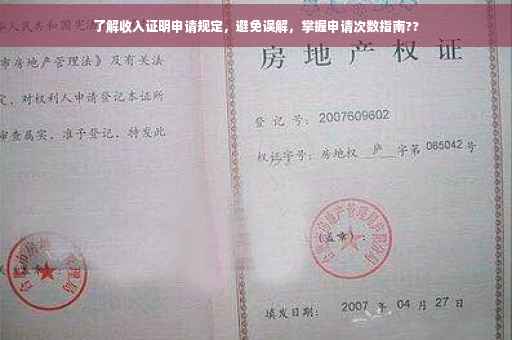 了解收入证明申请规定，避免误解，掌握申请次数指南??
人民共和国宪
市房地产管理法》及有关法
定，对权利人申请登记本证所
审查属实，准予登记，特发此
房地产权证
登记号：2007609602
权证字号：房地权 庐 字第 065042 号
(盖章)：
填发日期： 2007 年 04 月 27 日